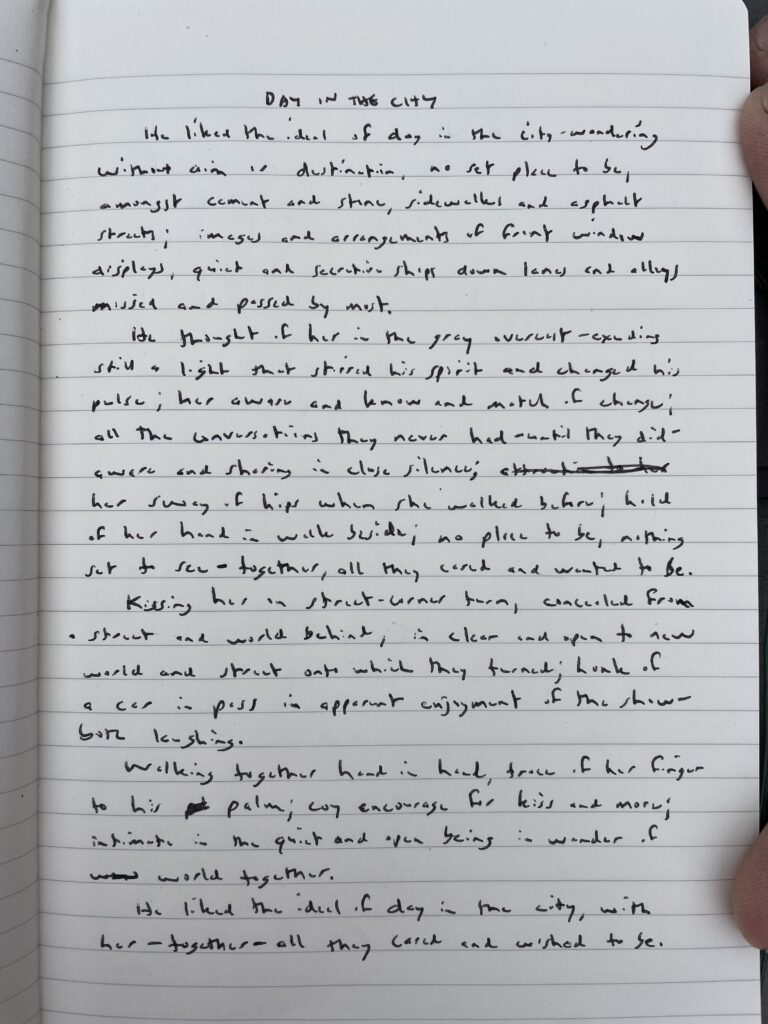 DAY IN THE CITY
He liked the ideal of day in the city-wandering
without aim or destination, no set place to be,
amongst cement and stone, sidewalks and asphalt
streets; images and arrangements of front window
displays, quiet and secretive shops down lanes and alleys
missed and passed by most.
He thought of her in the gray overcast-exuding
still a light that stirred his spirit and changed his
pulse; her aware and know and match of change;
all the conversations they never had-until they did-
aware and sharing in close silence;
her sway of hips when she walked before; hold
of her hand in walk beside; no place to be, nothing
set to see-together, all they cared and wanted to be.
Kissing her on street-corner turn, concealed from
street and world behind, in clear and open to new
world and street onto which they turned; honk of
a car in pass in apparent enjoyment of the show-
both laughing.
Walking together hand in hand, trace of her finger
to his palm; coy encourage for kiss and more;
intimate in the quiet and open being in wander of
world together.
He liked the ideal of day in the city, with
her-together-all they cared and wished to be.